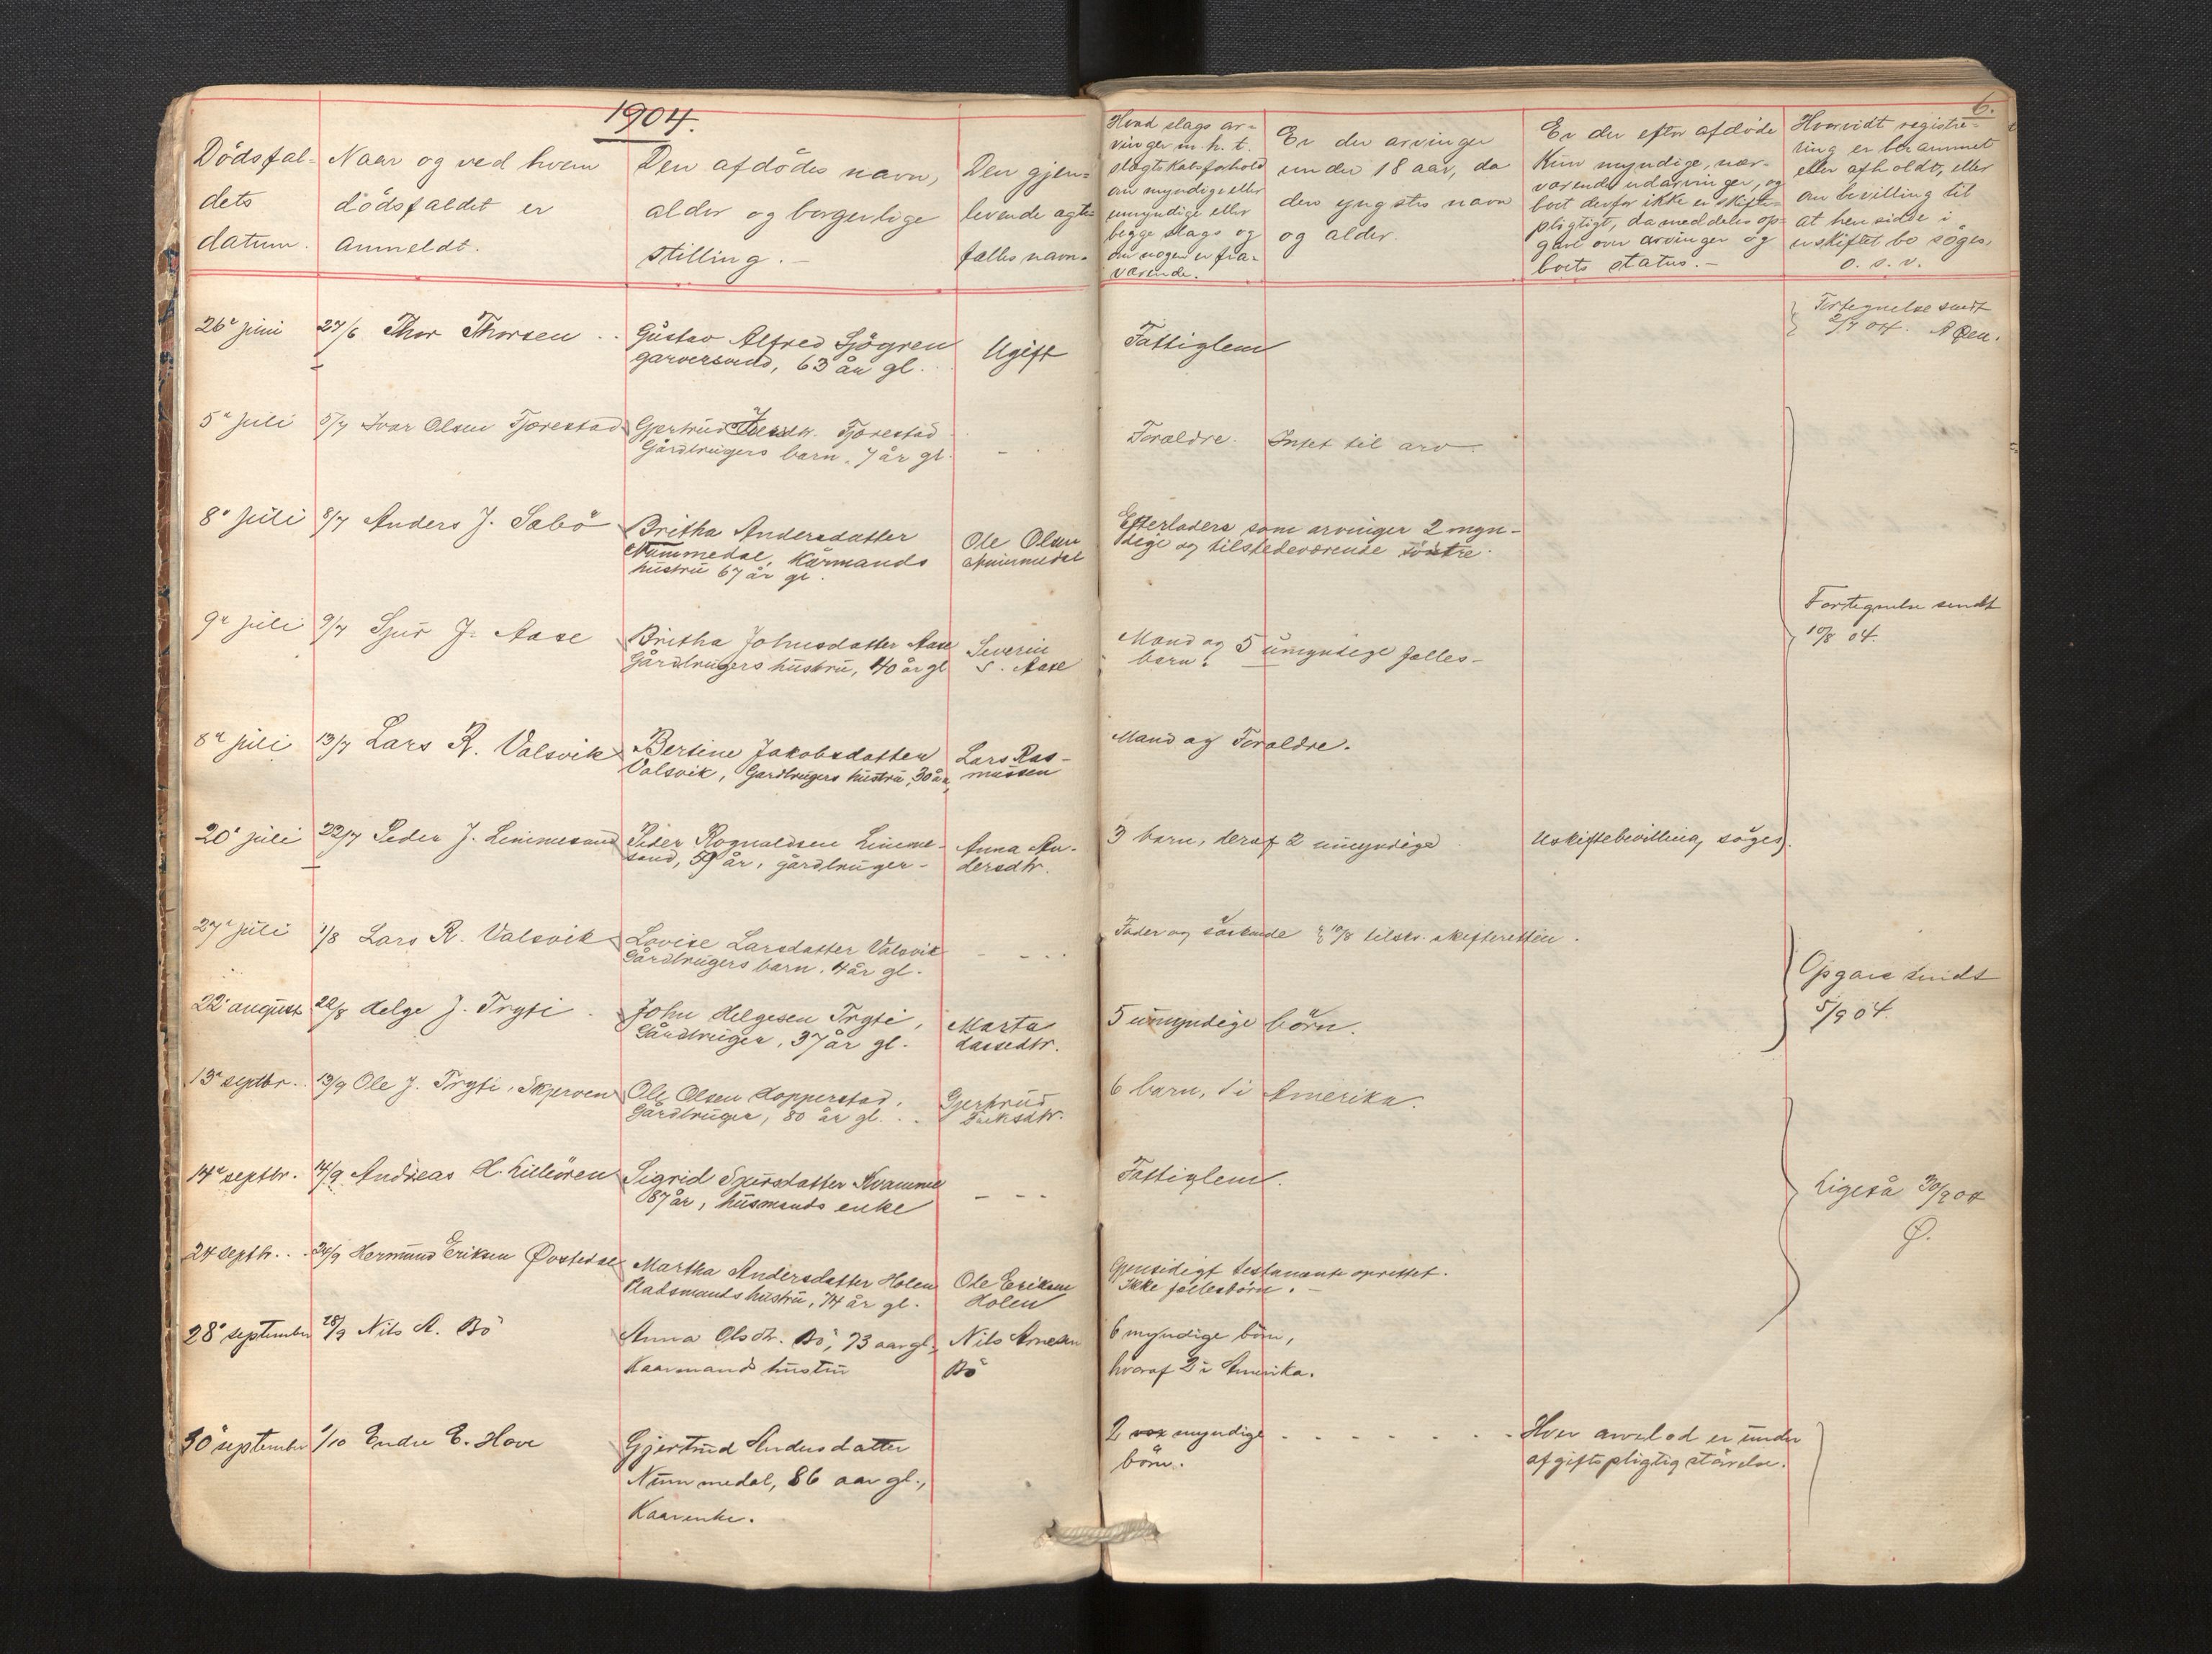 1904.
6.
Dödsfal-
dets
datum.
Naar og ved hvem
dödsfaldet er
anmeldt.
Den afdödes navn,
alder og borgerlige
stilling.-
Den gjen-
levende ægte-
fælles navn.
Hvad slags ar-
vinger m.h.t.
slægtskabsforhold
om myndige eller
umyndige eller
begge slags og
om nogen er fra-
værende.
Er der arvinger
under 18 aar, da
den yngstes navn
og alder.
Er der efter afdöde
kun myndige, nær-
værende udarvinger, og
boet derfor ikke er skifte-
pligtigt, da meddeles op-
gave over arvinger og
boets status.-
Hvorvidt registre-
ring er berammet
eller afholdt, eller
om bevilling til
at hensidde i
uskiftet bo söges,
o.s.v.
26 juni
27/6 Thor Thorsen
Gustav Alfred Sjögren
garversvend, 63 år gl.
Ugift
Fattiglem
Fortegnelse sendt
2/7 04.
5 juli
5/7 Ivar Olsen Tjorestad
Gjertrud Tjorestad
Gårdbrugers barn, 7 år gl.
Forældre. Intet til arv.
8 juli
8/7 Anders J. Sabö
Britha Andersdatter
Nummedal, Kårmands
hustru 67 år gl.
Ole Olsen
Nummedal
Efterladers som arvinger 2 myn-
dige og tilstedeværende söstre.
9 juli
9/7 Sjur J. Aase
Britha Johnsdatter Aase
Gårdbrugers hustru, 40 år gl
Severin
S. Aase
Mand og 5 umyndige fælles-
barn.
Fortegnelse sendt
10/8 04.
8 juli
13/7 Lars R. Valsvik
Bertine Jakobsdatter
Valsvik, Gardbrugers hustru, 30 år
Lars Ras-
mussen
Mand og Forældre.
20 juli
22/7 Peder J. Linimesand
Peder Rognaldsen Linime-
sand, 59 år, gårdbruger-
Anna An-
dersdtr.
3 barn, deraf 2 umyndige
Uskiftebevilling söges.
27 juli
1/8 Lars R. Valsvik
Lovise Larsdatter Valsvik
Gårdbrugers barn. 4 år gl.
Fader og söskende 10/8 tilskr. skifteretten.
Opgave sendt
5/9 04.
22 august
22/8 Helge J. Tryti
John Helgesen Tryti,
Gårdbruger, 37 år gl.
Marta
Lassedtr.
5 umyndige börn.
13 septbr.
13/9 Ole J. Tryti, Skjerven
Ole Olsen Hopperstad,
Gårdbruger, 80 år gl.
Gjertrud
6 barn, i Amerika.
14 septbr.
14/9 Andreas H. Lilleören
Sigrid Sjursdatter Kvamme
87 år, husmands enke
Fattiglem.
Ligeså 30/9 04
Ø.
24 septbr.
24/9 Hermund Eriksen Øvstedal
Martha Andersdatter Holen
Pladsmands hustru, 74 år gl.
Ole Eriksen
Holen
Gjensidigt testamente oprettet.
Ikke fællesbörn.-
28 september
28/9 Nils A. Bö
Anna Olsdtr. Bö, 73 aar gl.,
Kaarmands hustru
Nils Arnesen
Bö
6 myndige börn,
hvoraf 2 i Amerika.
30 september
1/10 Endre E. Hove
Gjertrud Andersdatter
Nummedal, 86 aar gl.,
Kaarenke.
2 myndige
börn.
Hver arvelod er under
afgiftspligtig störrelse.